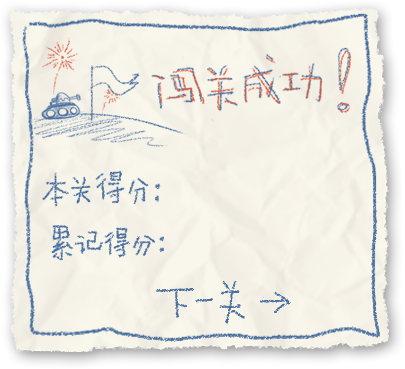 闯关成功！
本关得分：
累记得分：
下一关→